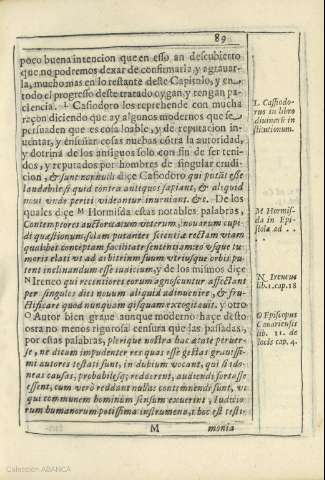 89
poco buena intencion que en esso an descubierto
que no podremos dexar de confirmarla, y agravar-
la, mucho mas en lo restante deste Capitulo, y en
todo el progresso deste tratado oygan, y tengan pa-
ciencia. L Casiodoro los reprehende con mucha
raçon diciendo que ay algunos modernos que se
persuaden que es cosa loable, y de reputacion in-
ventar, y enseñar cosas nuebas cōtra la autoridad,
y dotrina de los antiguos solo con fin de ser teni-
dos, y reputados por hombres de singular erudi-
cion, & sunt nonnulli diçe Casiodoro qui putāt esse
laudabile si quid contra antiquos sapiant, & aliquid
novi unde periti videantur inveniant. &c. De los
quales diçe M Hormisda estas notables palabras,
Contemptores auctoritatum veterum, novarum cupi-
di quæstionum, solam putantes scientiæ rectam viam
qualibet conceptam facilitate sententiam eo vsque tu-
moris elati vt ad arbitrium suum vtriusque orbis pu-
tent inclinandum esse iudicium, y de los mismos diçe
N Ireneo qui recentiores eorum agnoscuntur affectant
per singulos dies novum aliquid adinvenire, & fru-
ctificare quod nunquam quisquam excogitavit. y otro
O Autor bien grave aunque moderno haçe desto
otra no menos rigurosa censura que las passadas,
por estas palabras, plerique nostra hac ætate perver-
se, ne dicam impudenter res quas esse gestas gravissi-
mi autores testati sunt, in dubium vocant, qui si ido-
neas causas, probabilesq; redderent, audiendi fortesse
essent, cum verò reddant nullas contemnendi sunt, vt
qui communem hominum sensum exuerint, Iuditio
rum humanorum potissima instrumenta, t hoc est testi-
M
monia
L. Casiodo-
rus in libro
divinarū in
stitutionum.
M Hormis-
da in Epi-
stola ad . .
. .
N Ireneus
lib. 1. cap. 18
O Episcopus
Canariensis
lib. 11. de
locis cap. 4.
Colección ABANCA